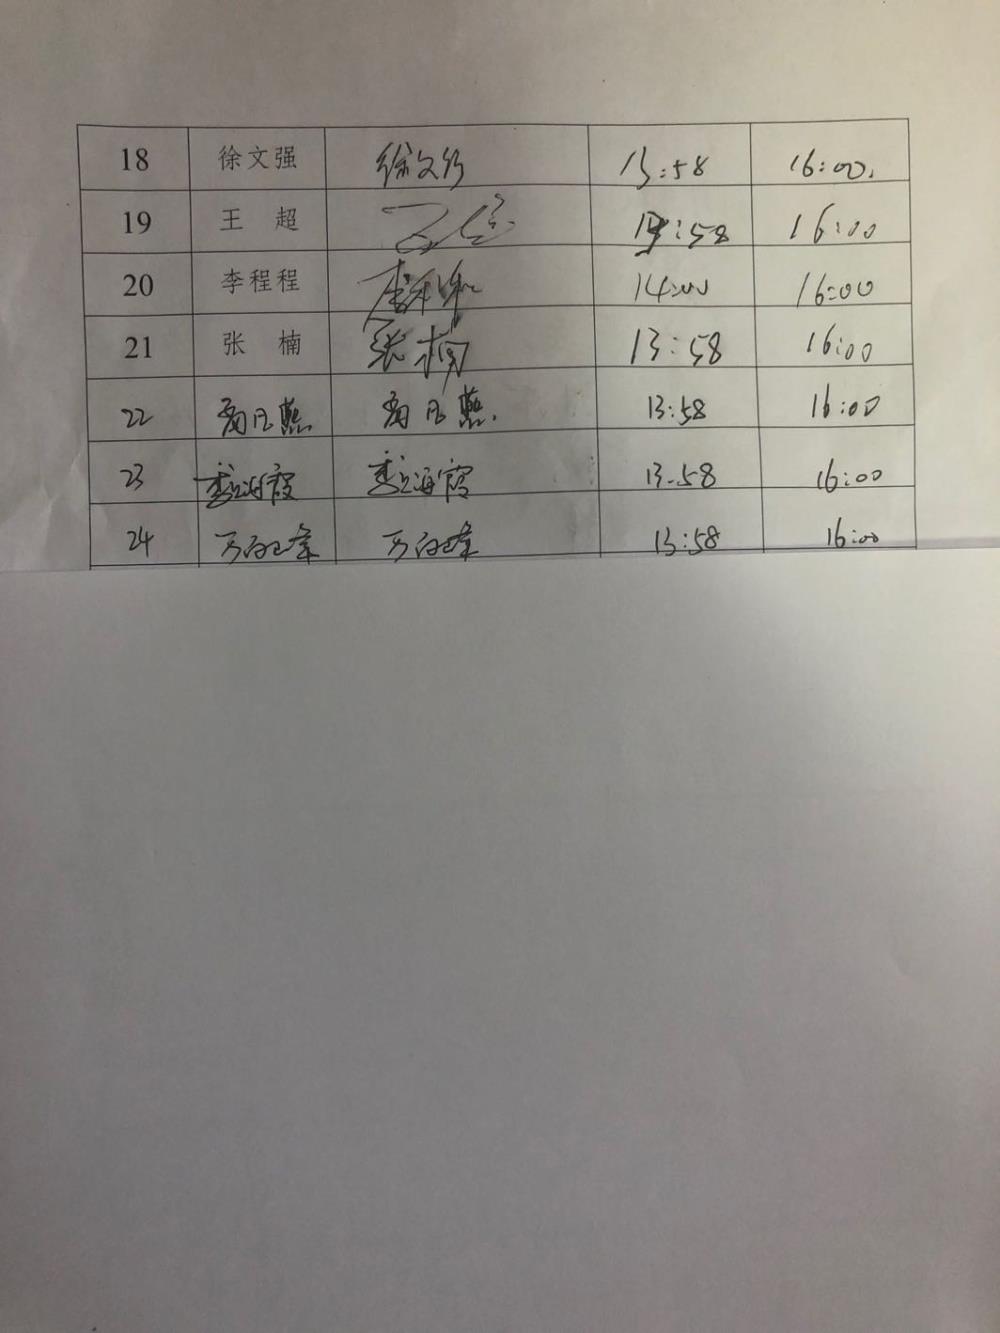 18 徐文强 徐文强 13:58 16:00.
19 王 超 王超 13:58 16:00
20 李程程 李程程 14:00 16:00
21 张 楠 张楠 13:58 16:00
22 13:58 16:00
23 李海霞 李海霞 13:58 16:00
24 13:58 16:00